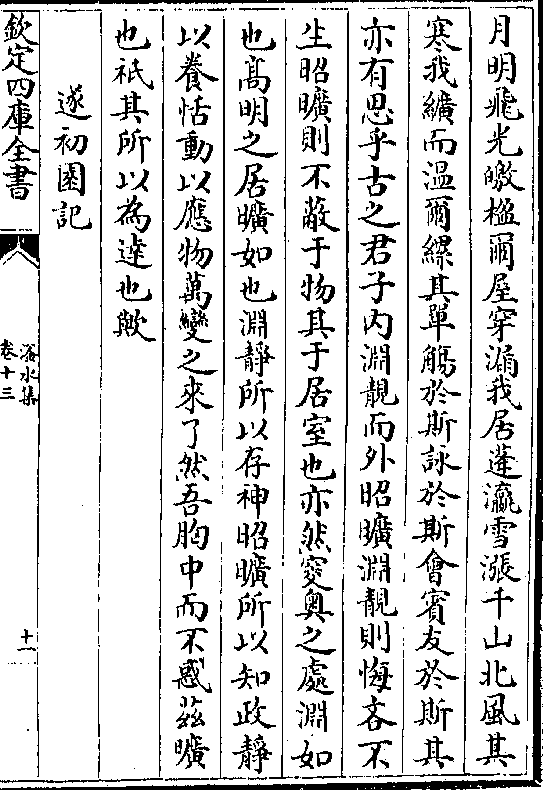 月明飛光皦楹爾屋穿漏我居蓬瀛雪漲千山北風其
寒我纊而溫爾縲其單觴於斯詠於斯會賓友於斯其
亦有思乎古之君子内淵靚而外昭曠淵靚則悔吝不
生昭曠則不蔽于物其于居室也亦然窔奥之處淵如
也髙明之居曠如也淵靜所以存神昭曠所以知政靜
以養恬動以應物萬變之來了然吾胸中而不惑茲曠
也祇其所以為達也歟
遂初園記
欽定四庫全書
滏水集
卷十三
十一